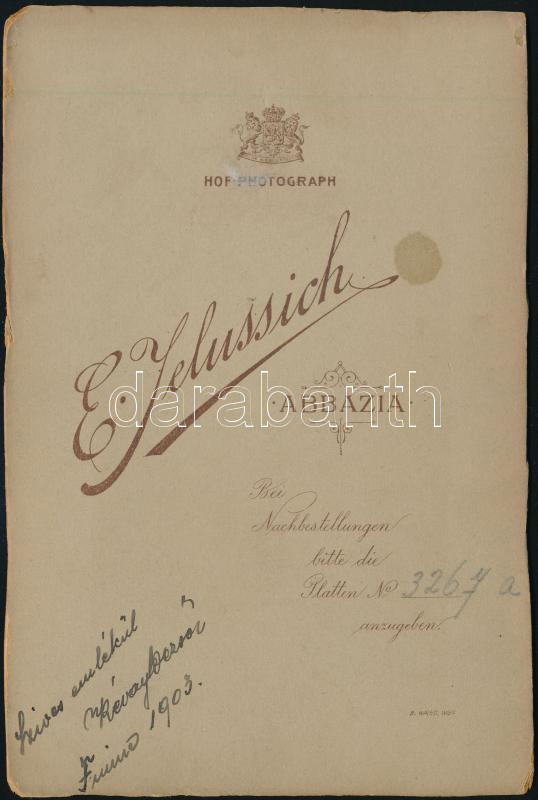 HOF-PHOTOGRAPH
E. Jelussich
darabanth
· ABBAZIA ·
Bei
Nachbestellungen
bitte die
Platten No 3267 a
anzugeben.
Szives emlékül
Révay
Fiume 1903.